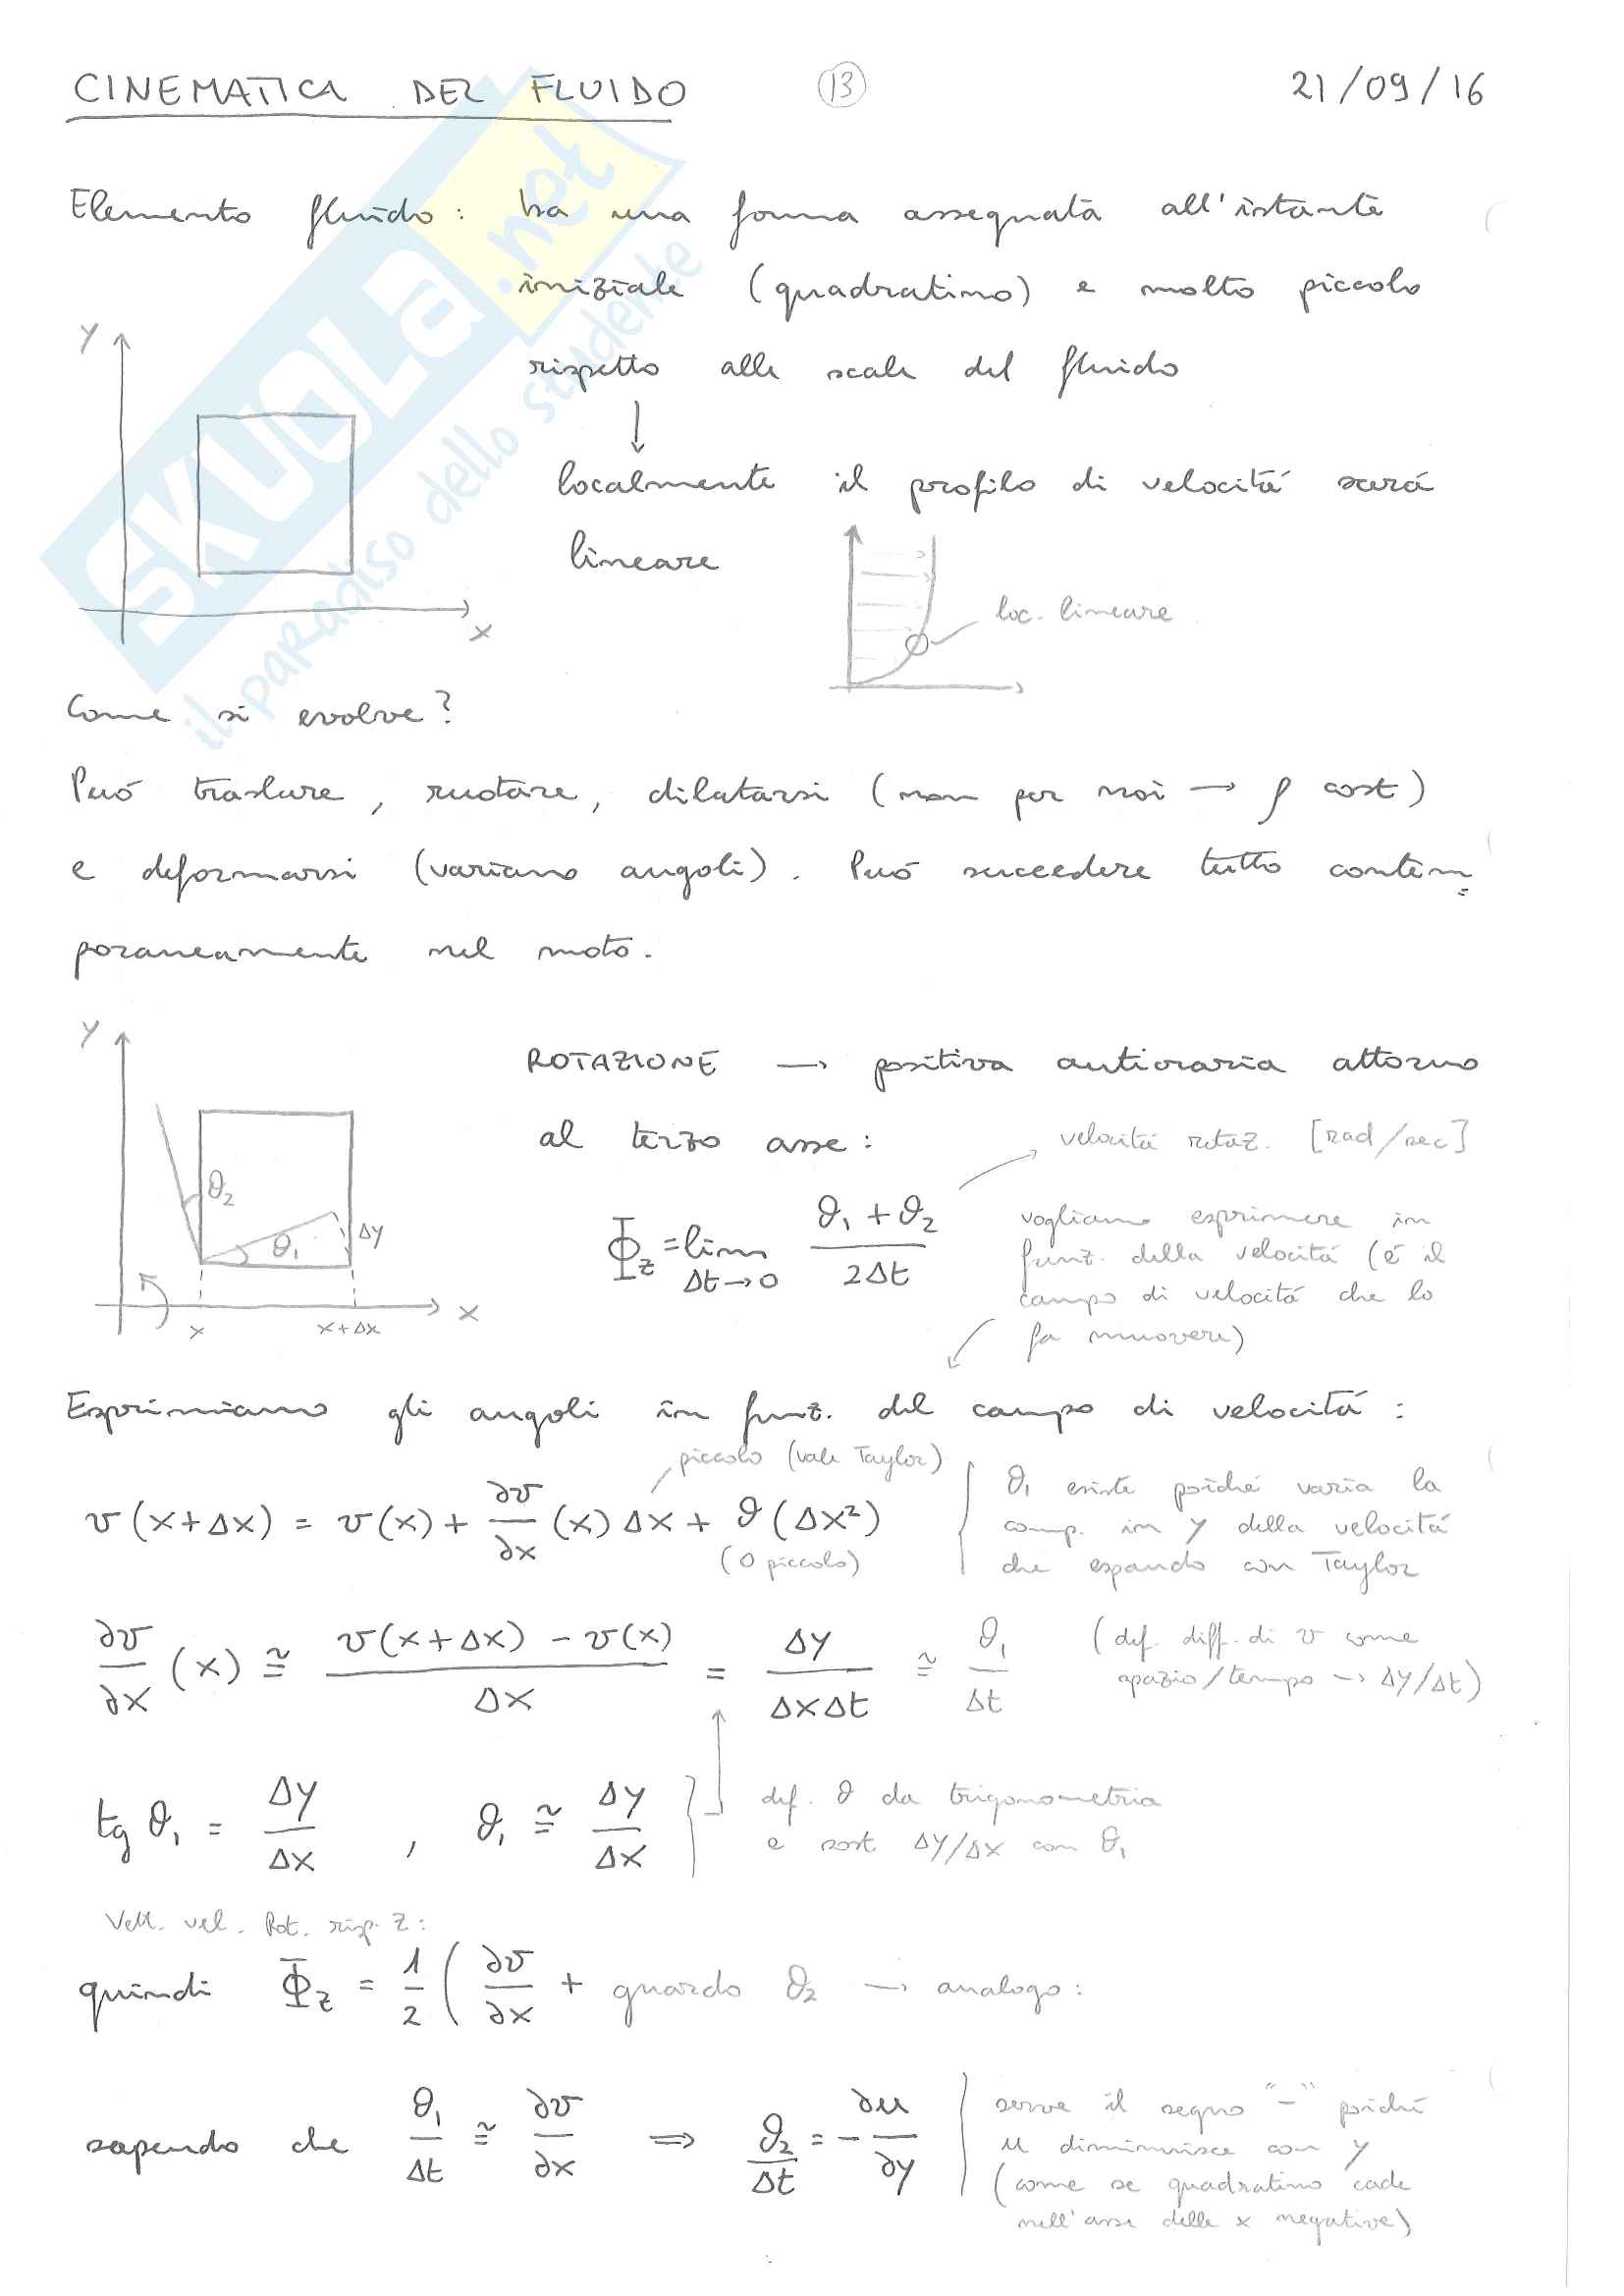 CINEMATICA DEL FLUIDO 13 21/09/16
Elemento fluido: ha una forma assegnata all'istante
iniziale (quadratino) e molto piccolo
rispetto alle scale del fluido
↓
localmente il profilo di velocitá sará
lineare
loc. lineare
y
x
Come si evolve?
Puó traslare, ruotare, dilatarsi (non per noi → ρ cost)
e deformarsi (variano angoli). Puó succedere tutto contem=
poraneamente nel moto.
y
θ2
θ1
Δy
x
x x+Δx
ROTAZIONE → positiva antioraria attorno
al terzo asse: velocitá rotaz. [rad/sec]
Φz = lim Δt→0 (θ1 + θ2)/(2Δt)
vogliamo esprimere in
funz. della velocitá (é il
campo di velocitá che lo
fa muovere)
Esprimiamo gli angoli in funz. del campo di velocitá:
piccolo (vale Taylor)
v(x+Δx) = v(x) + ∂v/∂x (x) Δx + θ(Δx²)
(O piccolo)
θ1 esiste poiché varia la
comp. in y della velocitá
che espando con Taylor
∂v/∂x (x) ≅ (v(x+Δx) - v(x))/Δx = Δy/(ΔxΔt) ≅ θ1/Δt
(def. diff. di v come
spazio/tempo → Δy/Δt)
tg θ1 = Δy/Δx , θ1 ≅ Δy/Δx
def. θ da trigonometria
e sost Δy/Δx con θ1
Vett. vel. Rot. risp. z:
quindi Φz = 1/2 ( ∂v/∂x + guardo θ2 → analogo:
sapendo che θ1/Δt ≅ ∂v/∂x ⇒ θ2/Δt = - ∂u/∂y
serve il segno "-" poiché
u diminuisce con y
(come se quadratino cade
nell'asse delle x negative)
SKUOLA.net
il paradiso dello studente